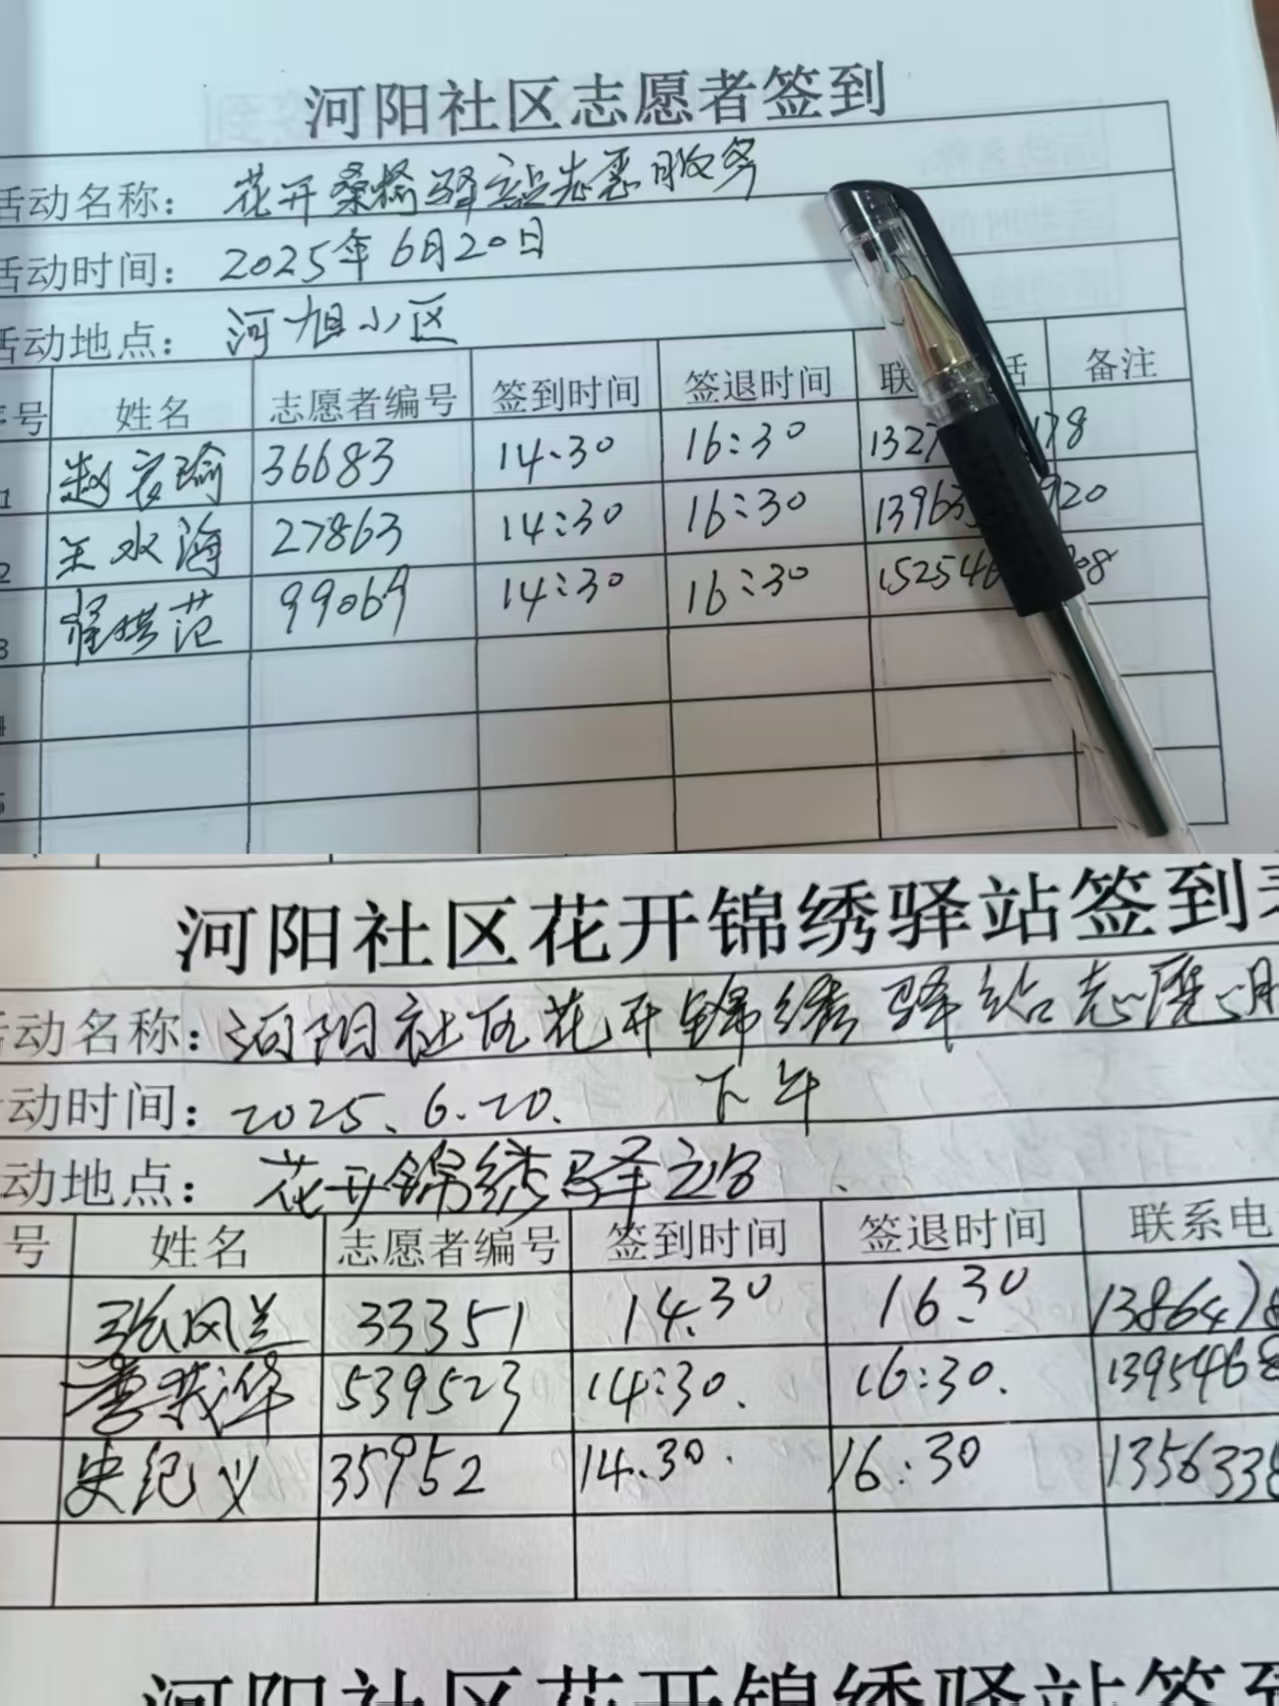 河阳社区志愿者签到
活动名称： 花开桑榆驿站志愿服务
活动时间： 2025年6月20日
活动地点： 河旭小区
序号 姓名 志愿者编号 签到时间 签退时间 联 话 备注
1 赵 瑜 36683 14.30 16:30 1327 178
2 王水海 27863 14:30 16:30 13963 920
3 范 99069 14:30 16:30 152546 08
4
5
河阳社区花开锦绣驿站签到表
活动名称： 河阳社区花开锦绣驿站志愿服
动时间： 2025.6.20. 下午
动地点： 花开锦绣驿站
号 姓名 志愿者编号 签到时间 签退时间 联系电
张风兰 33351 14.30 16.30 138647
华 539523 14:30. 16:30. 1395468
史纪义 35952 14.30. 16:30 1356338
河阳社区花开锦绣驿站签到